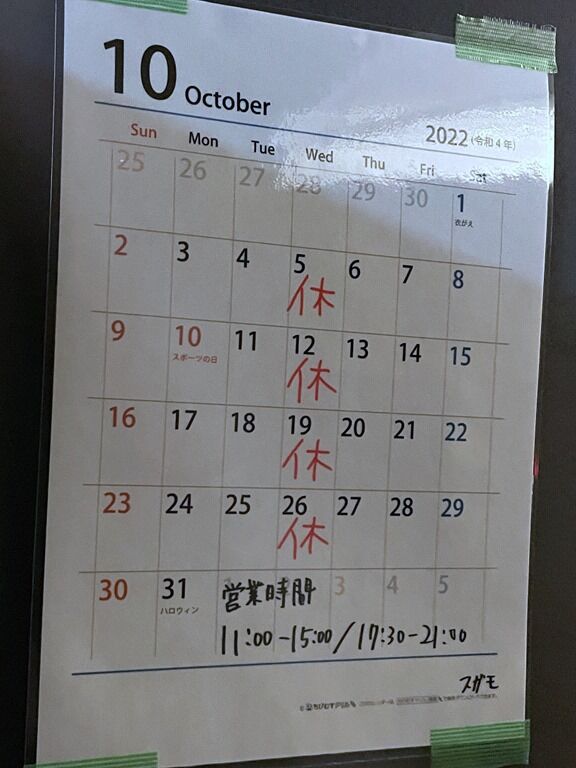 10 October
2022 (令和4年)
Sun Mon Tue Wed Thu Fri Sat
25 26 27 28 29 30 1
衣がえ
2 3 4 5 6 7 8
休
9 10 11 12 13 14 15
スポーツの日
休
16 17 18 19 20 21 22
休
23 24 25 26 27 28 29
休
30 31 1 2 3 4 5
ハロウィン
営業時間
11:00-15:00/17:30-21:00
スガモ
ちびむすドリル